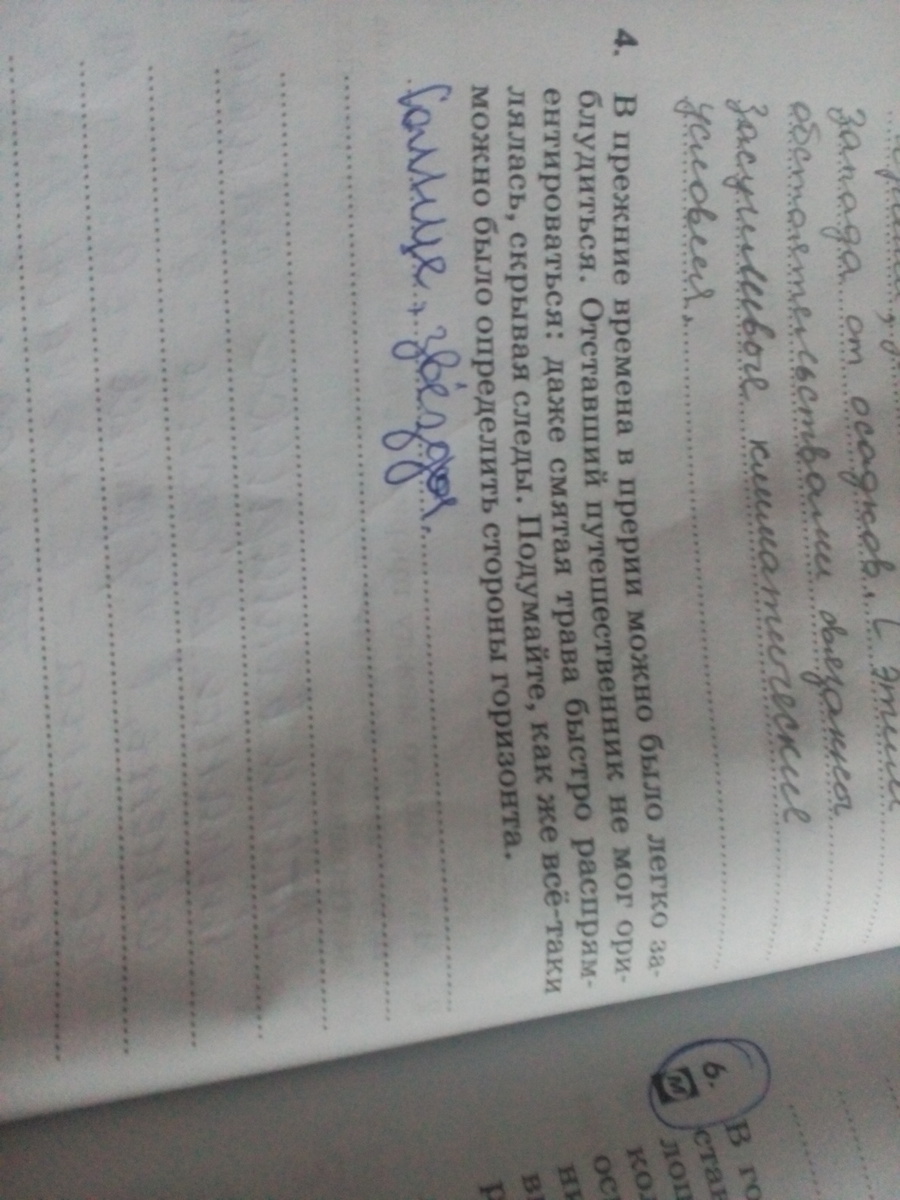 запада от осадков. С этими
обстоятельствами связаны
засушливые климатические
условия.
4. В прежние времена в прерии можно было легко за-
блудиться. Отставший путешественник не мог ори-
ентироваться: даже смятая трава быстро распрям-
лялась, скрывая следы. Подумайте, как же всё-таки
можно было определить стороны горизонта.
Солнце, звёзды.
6. В го
м стан
лоп
кол
ос
ни
вы
р